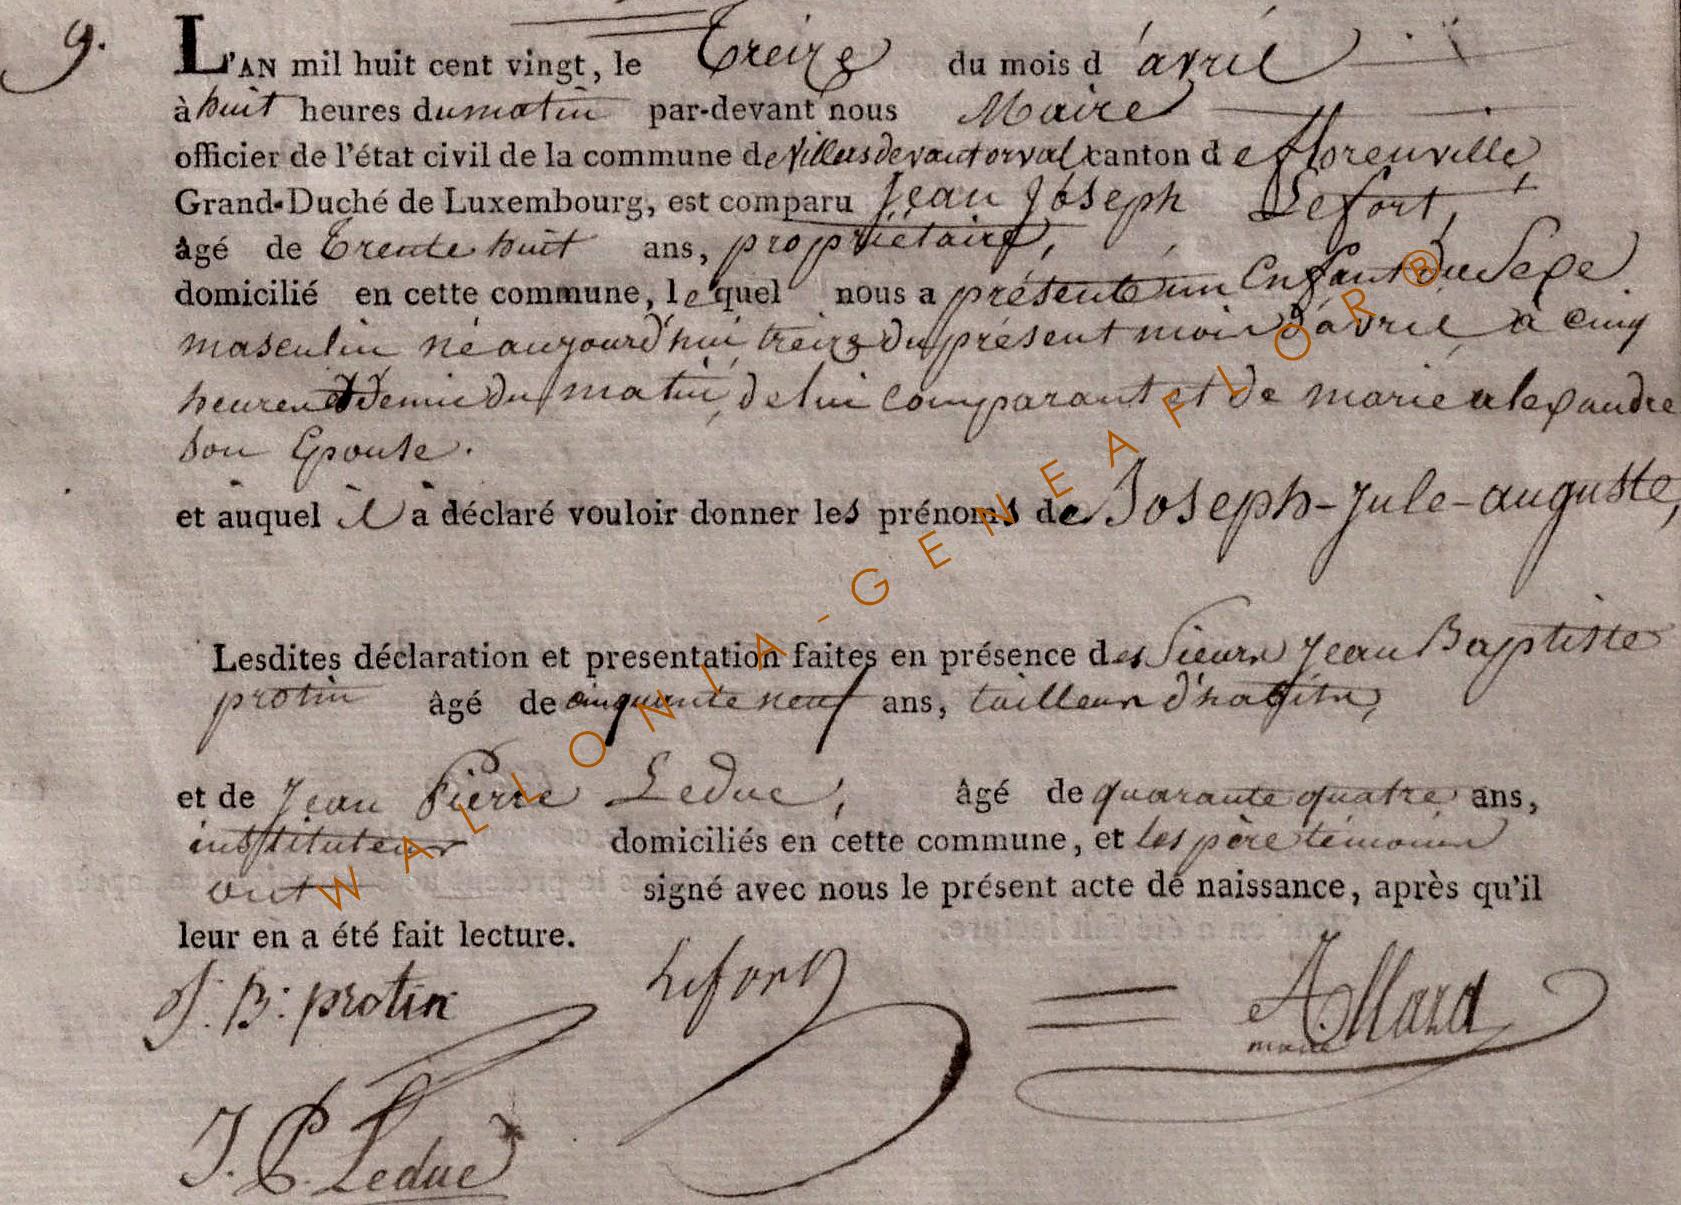 9.
L'AN mil huit cent vingt, le treize du mois d'avril
à huit heures du matin par-devant nous Maire
officier de l'état civil de la commune de Villersdevantorval canton de florenville
Grand-Duché de Luxembourg, est comparu Jean Joseph Lefort,
âgé de trente huit ans, propriétaire,
domicilié en cette commune, lequel nous a présenté un Enfant du Sexe
masculin né aujourd'hui treize du présent mois d'avril à cinq
heures et demie du matin, de lui comparant et de marie alexandre
son Epouse.
et auquel il a déclaré vouloir donner les prénoms de Joseph-Jule-auguste,
Lesdites déclaration et presentation faites en présence des Sieurs Jean Baptiste
protin âgé de cinquante neuf ans, tailleur d'habits,
et de Jean Pierre Leduc, âgé de quarante quatre ans,
instituteur domiciliés en cette commune, et les père témoins
ont signé avec nous le présent acte de naissance, après qu'il
leur en a été fait lecture.
J. B. protin Lefort A. Allard
maire
J. P. Leduc
WALLONIA-GENEAFLOR®